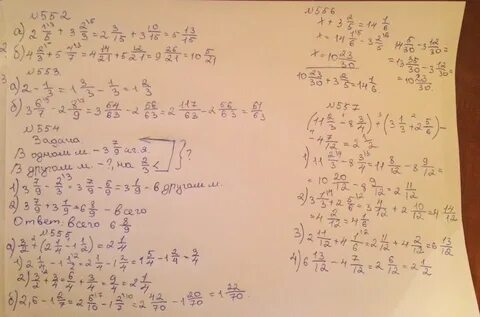 №552
а) 2 1/5 + 3 2/3 = 2 3/15 + 3 10/15 = 5 13/15
б) 4 2/3 + 5 4/7 = 4 14/21 + 5 12/21 = 9 26/21 = 10 5/21
№553
а) 2 - 1/3 = 1 3/3 - 1/3 = 1 2/3
б) 3 6/7 - 2 8/9 = 3 54/63 - 2 56/63 = 2 117/63 - 2 56/63 = 61/63
№554
Задача
В одном м. - 3 7/9 кг я.
В другом м. - ?, на 2/3 <
?
1) 3 7/9 - 2/3 = 3 7/9 - 6/9 = 3 1/9 - в другом м.
2) 3 7/9 + 3 1/9 = 6 8/9 - всего
Ответ: всего 6 8/9
№555
а) 3/2 + (2 1/4 - 1 1/2) = 2 1/4
1) 2 1/4 - 1 1/2 = 2 1/4 - 1 2/4 = 1 5/4 - 1 2/4 = 3/4
2) 3/2 + 3/4 = 6/4 + 3/4 = 9/4 = 2 1/4
б) 2,6 - 1 2/7 = 2 6/10 - 1 2/7 = 2 42/70 - 1 20/70 = 1 22/70
№556
x + 3 2/5 = 14 1/6
x = 14 1/6 - 3 2/5
x = 10 23/30
10 23/30 + 3 2/5 = 14 1/6
14 5/30 - 3 12/30 =
13 35/30 - 3 12/30 =
10 23/30
№557
(11 2/3 - 8 3/4) + (3 1/3 + 2 5/6) -
- 4 7/12 = 2 1/2
1) 11 2/3 - 8 3/4 = 11 8/12 - 8 9/12 =
= 10 20/12 - 8 9/12 = 2 11/12
3) 2 11/12 + 4 1/6 = 2 11/12 + 4 2/12 = 6 13/12
4) 6 13/12 - 4 7/12 = 2 6/12 = 2 1/2